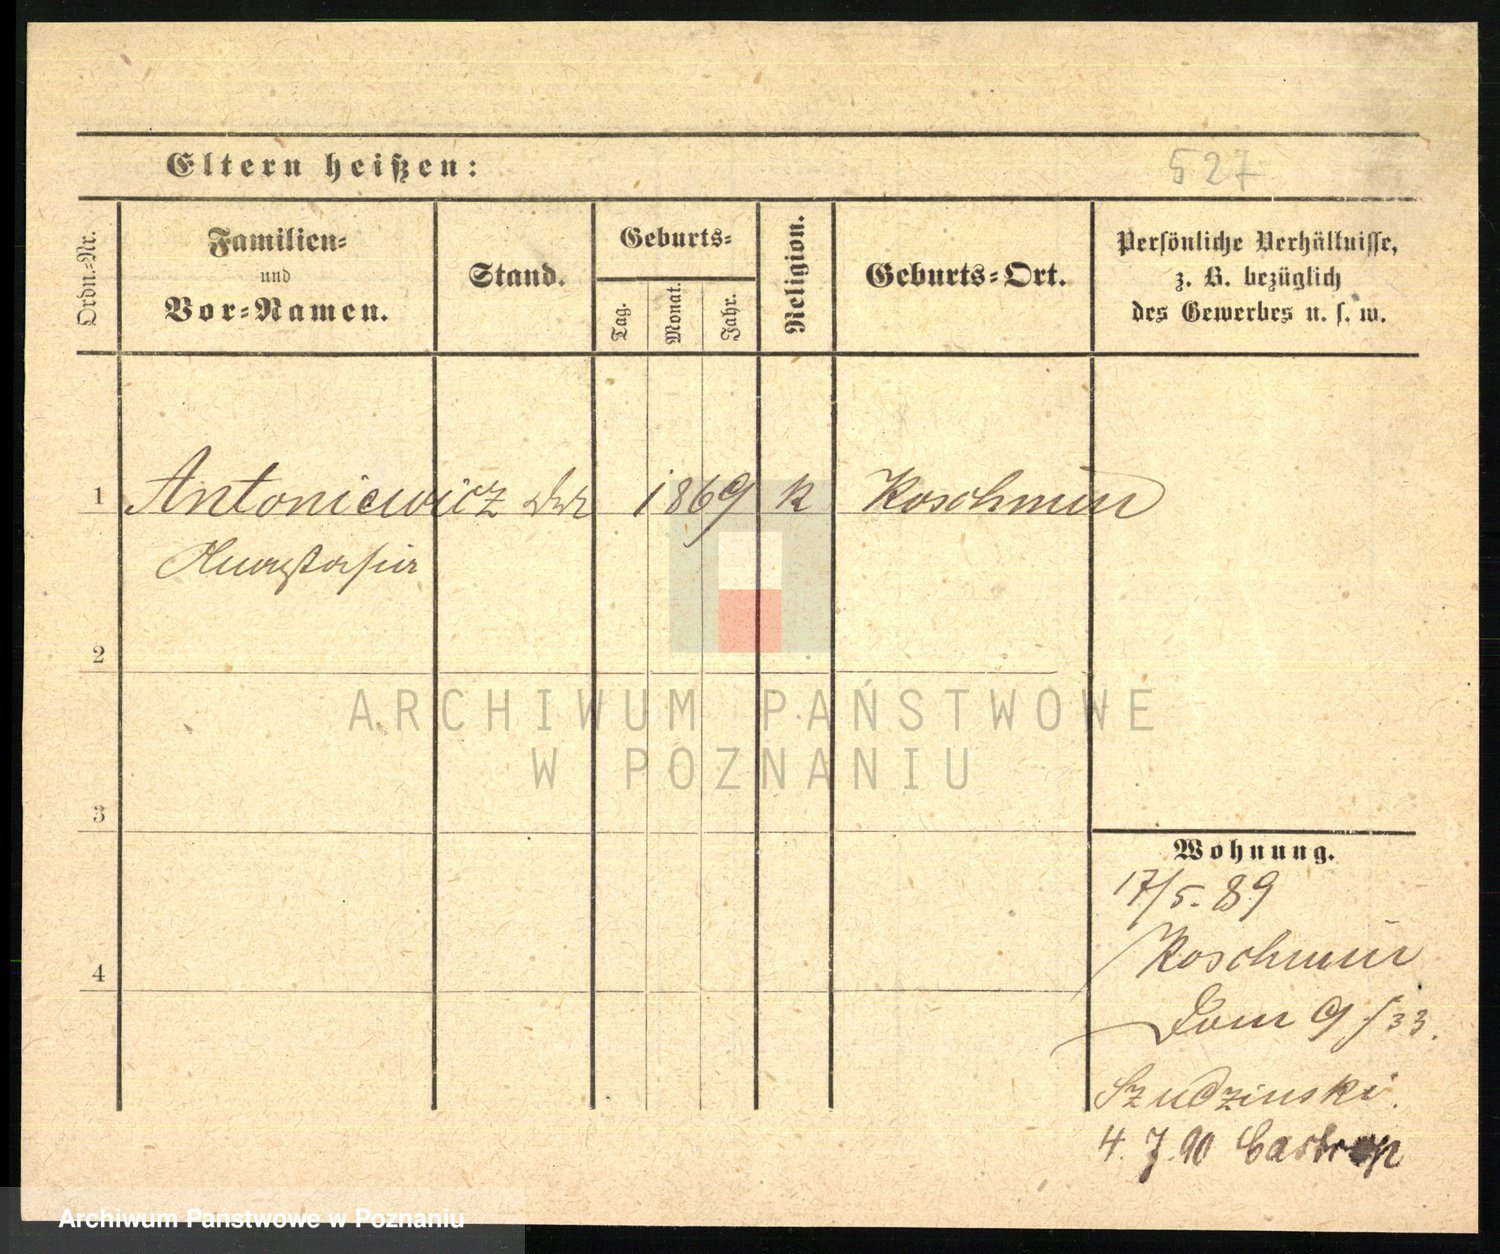 Eltern heißen:
527
Ordn.-Nr.
Familien-
und
Vor-Namen.
Stand.
Geburts-
Tag.
Monat.
Jahr.
Religion.
Geburts-Ort.
Persönliche Verhältnisse,
z. B. bezüglich
des Gewerbes u. s. w.
1 Antoniewicz 1869 k Koschmin
Anastasia
2
3
4
Wohnung.
17/5. 89
Koschmin
Dom 9 / 33.
Szudzinski.
4. 7. 90 Castrop
ARCHIWUM PAŃSTWOWE
W POZNANIU
Archiwum Państwowe w Poznaniu